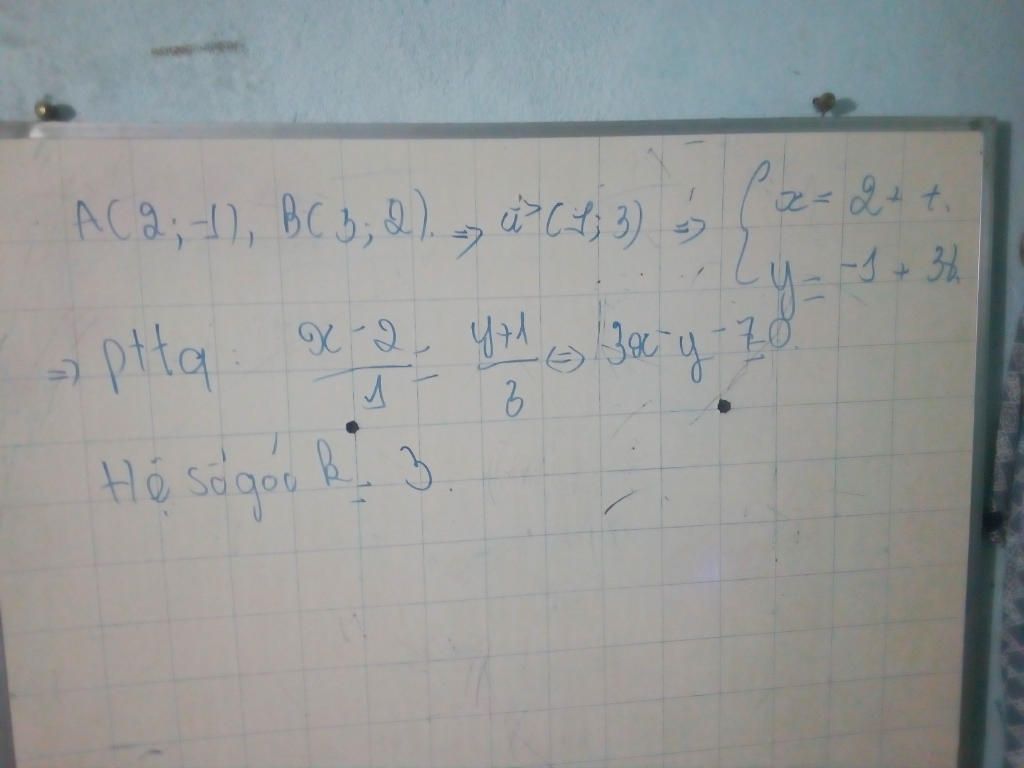 A(2;-1), B(3;2). => u→(1;3) => { x = 2 + t.
y = -1 + 3t.
=> pttq: (x-2)/1 = (y+1)/3 <=> 3x - y - 7 = 0.
Hệ số góc k = 3.